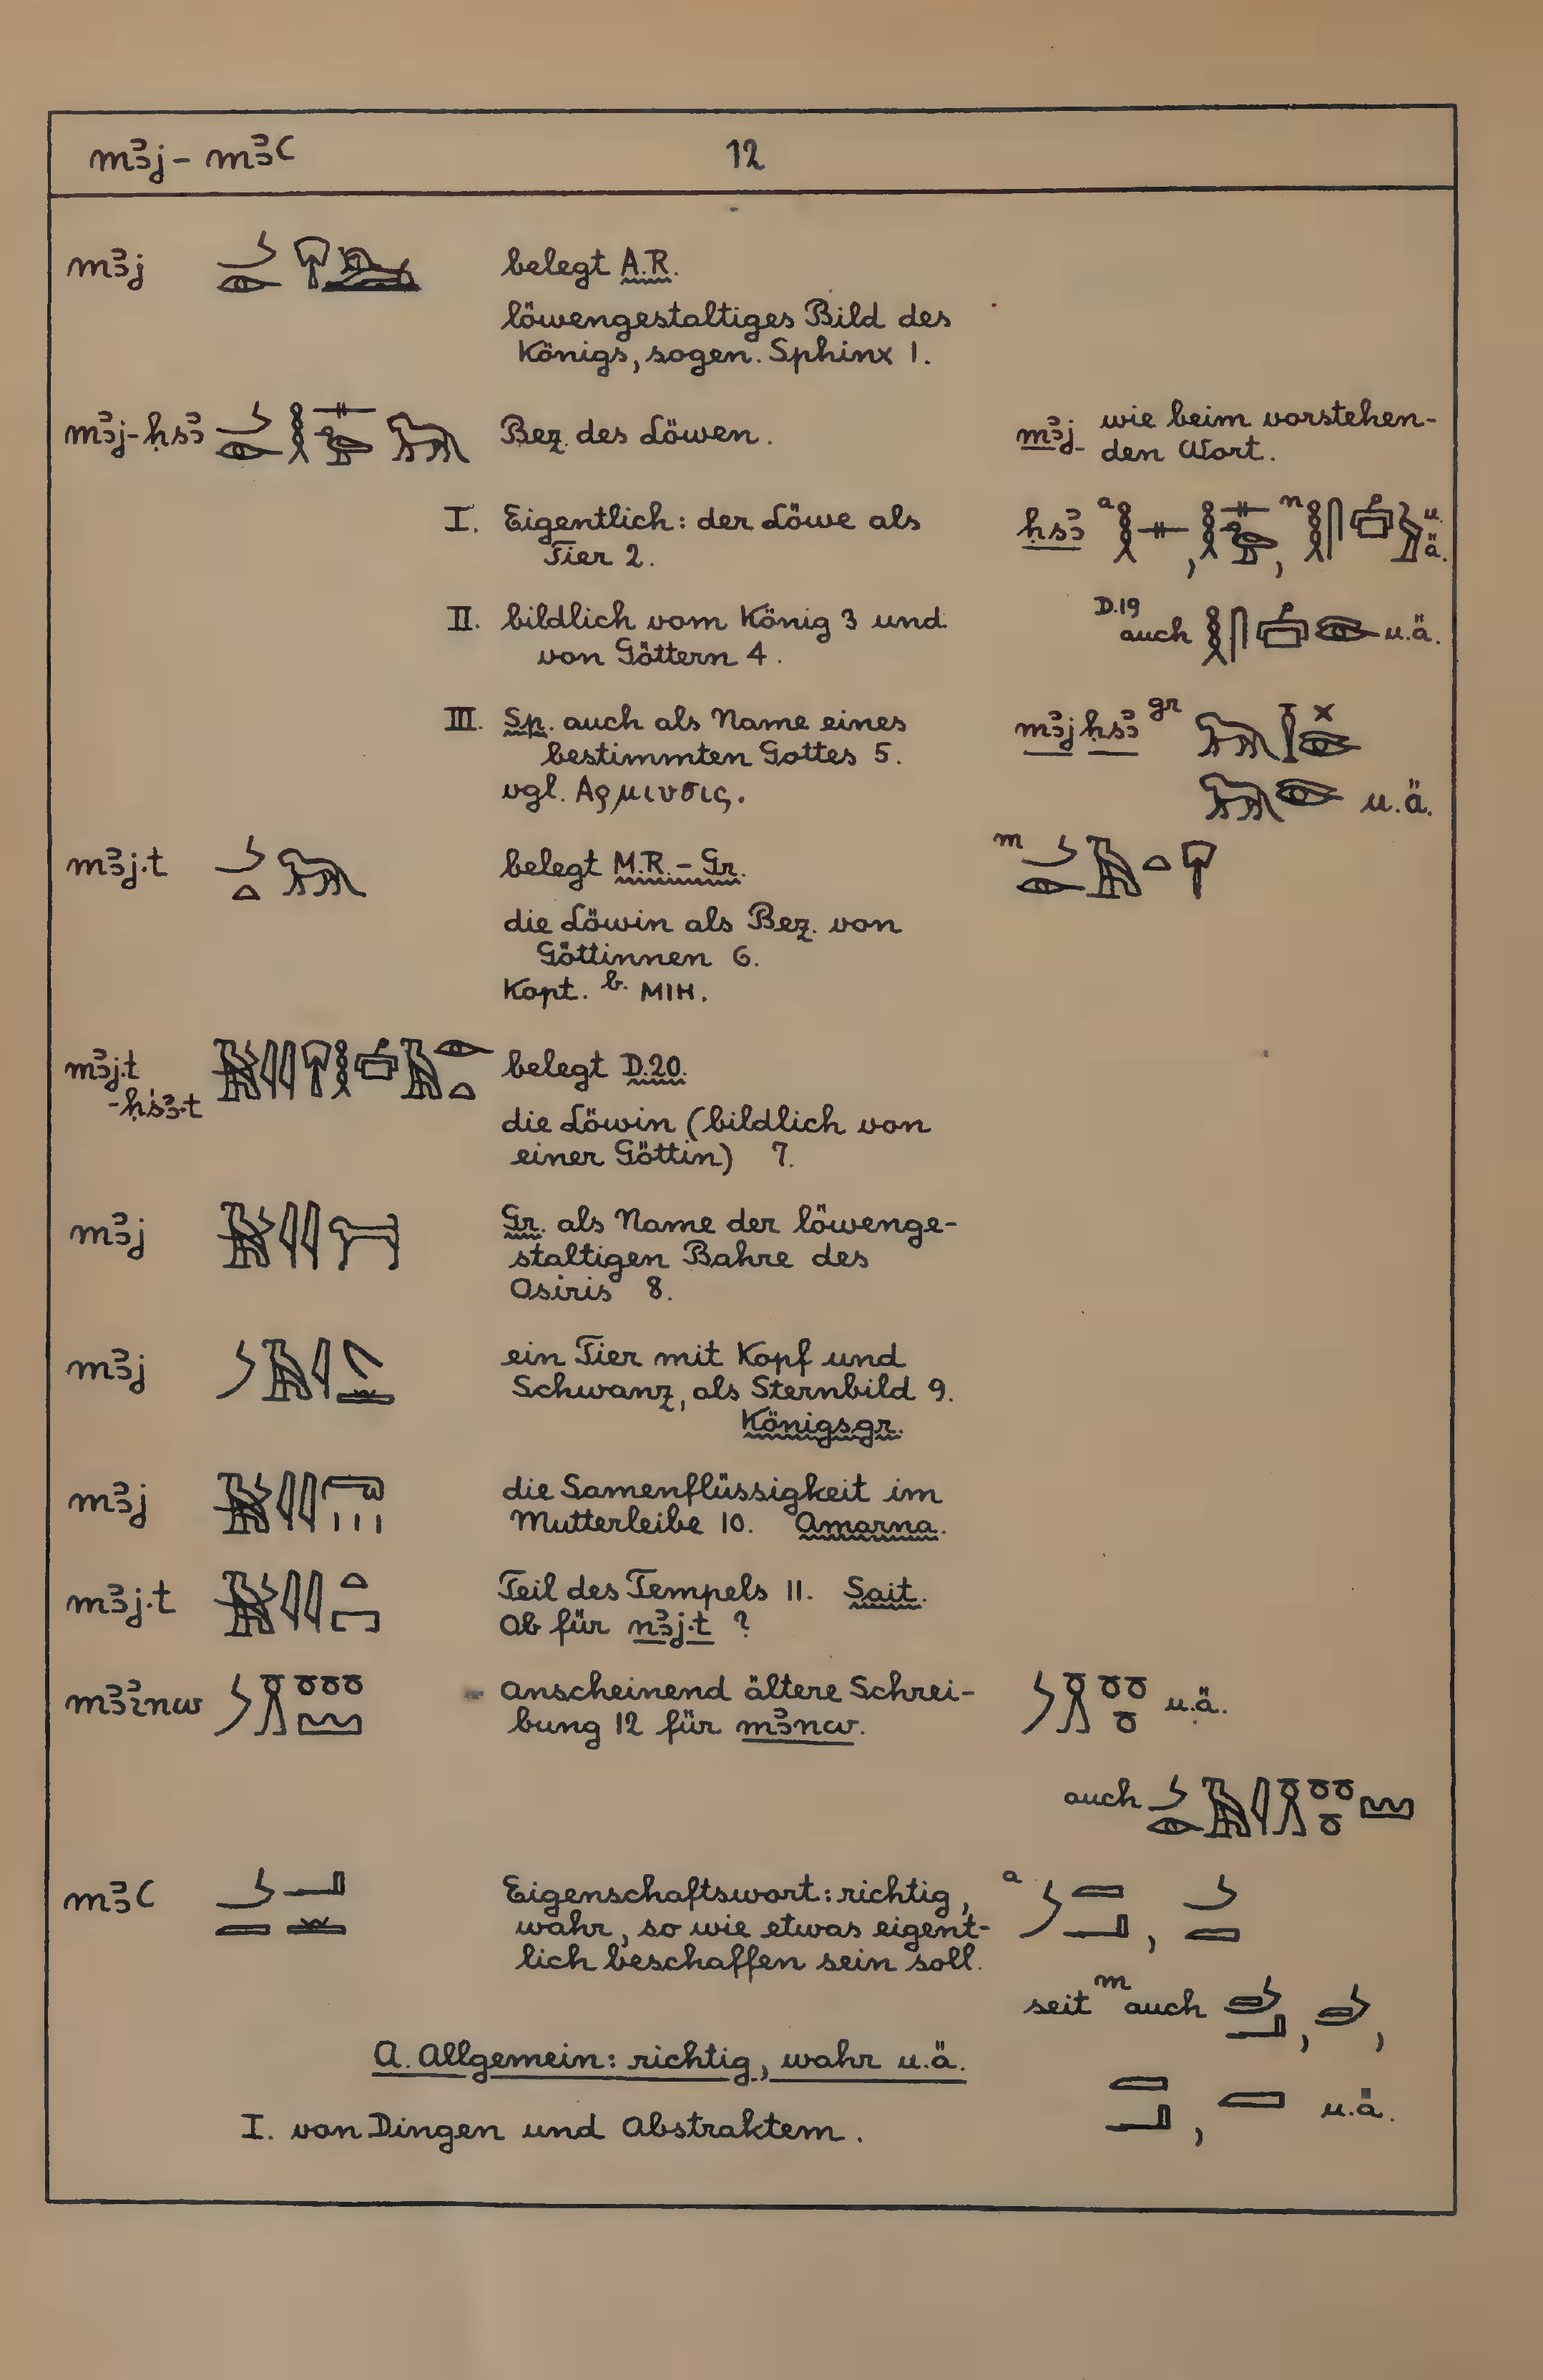 mꜣj – mꜣꜥ 12
mꜣj belegt A.R.
löwengestaltiges Bild des
Königs, sogen. Sphinx 1.
mꜣj-ḥsꜣ Bez. des Löwen. mꜣj wie beim vorstehen-
den Wort.
I. Eigentlich: der Löwe als
Tier 2.
ḥsꜣ a , , n u.
ä.
II. bildlich vom König 3 und
von Göttern 4.
D.19
auch u.ä.
III. Sp. auch als Name eines
bestimmten Gottes 5.
vgl. Αρμιυσις.
mꜣj ḥsꜣ gr
u.ä.
mꜣj.t belegt M.R. – Gr. m
die Löwin als Bez. von
Göttinnen 6.
Kopt. b. ⲙⲓⲏ.
mꜣj.t
-ḥśꜣ.t
belegt D.20.
die Löwin (bildlich von
einer Göttin) 7.
mꜣj Gr. als Name der löwenge-
staltigen Bahre des
Osiris 8.
mꜣj ein Tier mit Kopf und
Schwanz, als Sternbild 9.
Königsgr.
mꜣj die Samenflüssigkeit im
Mutterleibe 10. Amarna.
mꜣj.t Teil des Tempels 11. Sait.
Ob für nꜣj.t ?
mꜣꜣnw anscheinend ältere Schrei-
bung 12 für mꜣnw.
u.ä.
auch
mꜣꜥ Eigenschaftswort: richtig,
wahr, so wie etwas eigent-
lich beschaffen sein soll.
a ,
seit m auch , ,
, u.ä.
A. Allgemein: richtig, wahr u.ä.
I. von Dingen und Abstraktem.